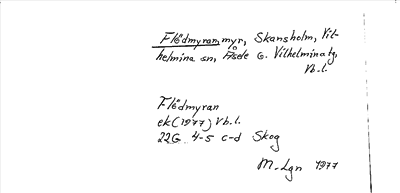 Flödmyran, myr, Skansholm, Vil-
helmina sn, Åsele G. Vilhelmina tg,
Vb. l.
Flödmyran
ek (1977) Vb. l.
22G 4-5 c-d Skog
M. Lgn 1977